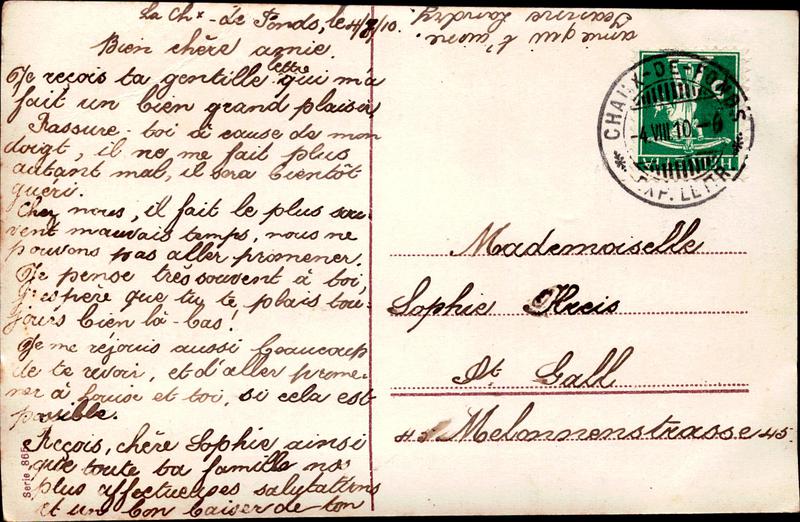 La Chx-de-Fonds, le 4/8/10.
Bien chère amie.
Je reçois ta gentille lettre qui m'a
fait un bien grand plaisir
Rassure-toi à cause de mon
doigt, il ne me fait plus
autant mal, il sera bientôt
guéri.
Chez nous, il fait le plus sou-
vent mauvais temps, nous ne
pouvons pas aller promener.
Je pense très souvent à toi,
j'espère que tu te plais tou-
jours bien là-bas!
Je me réjouis aussi beaucoup
de te revoir, et d'aller prome-
ner à et toi, si cela est
possible.
Reçois, chère Sophie ainsi
que toute ta famille nos
plus affectueuses salutations
et un bon baiser de ton
amie qui t'aime.
Jeanne Landry.
Serie 865
CHAUX-DE-FONDS
-4.VIII.10.-6
EXP. LETTR.
Mademoiselle
Sophie Kreis
St Gall
45 Melonnenstrasse 45.